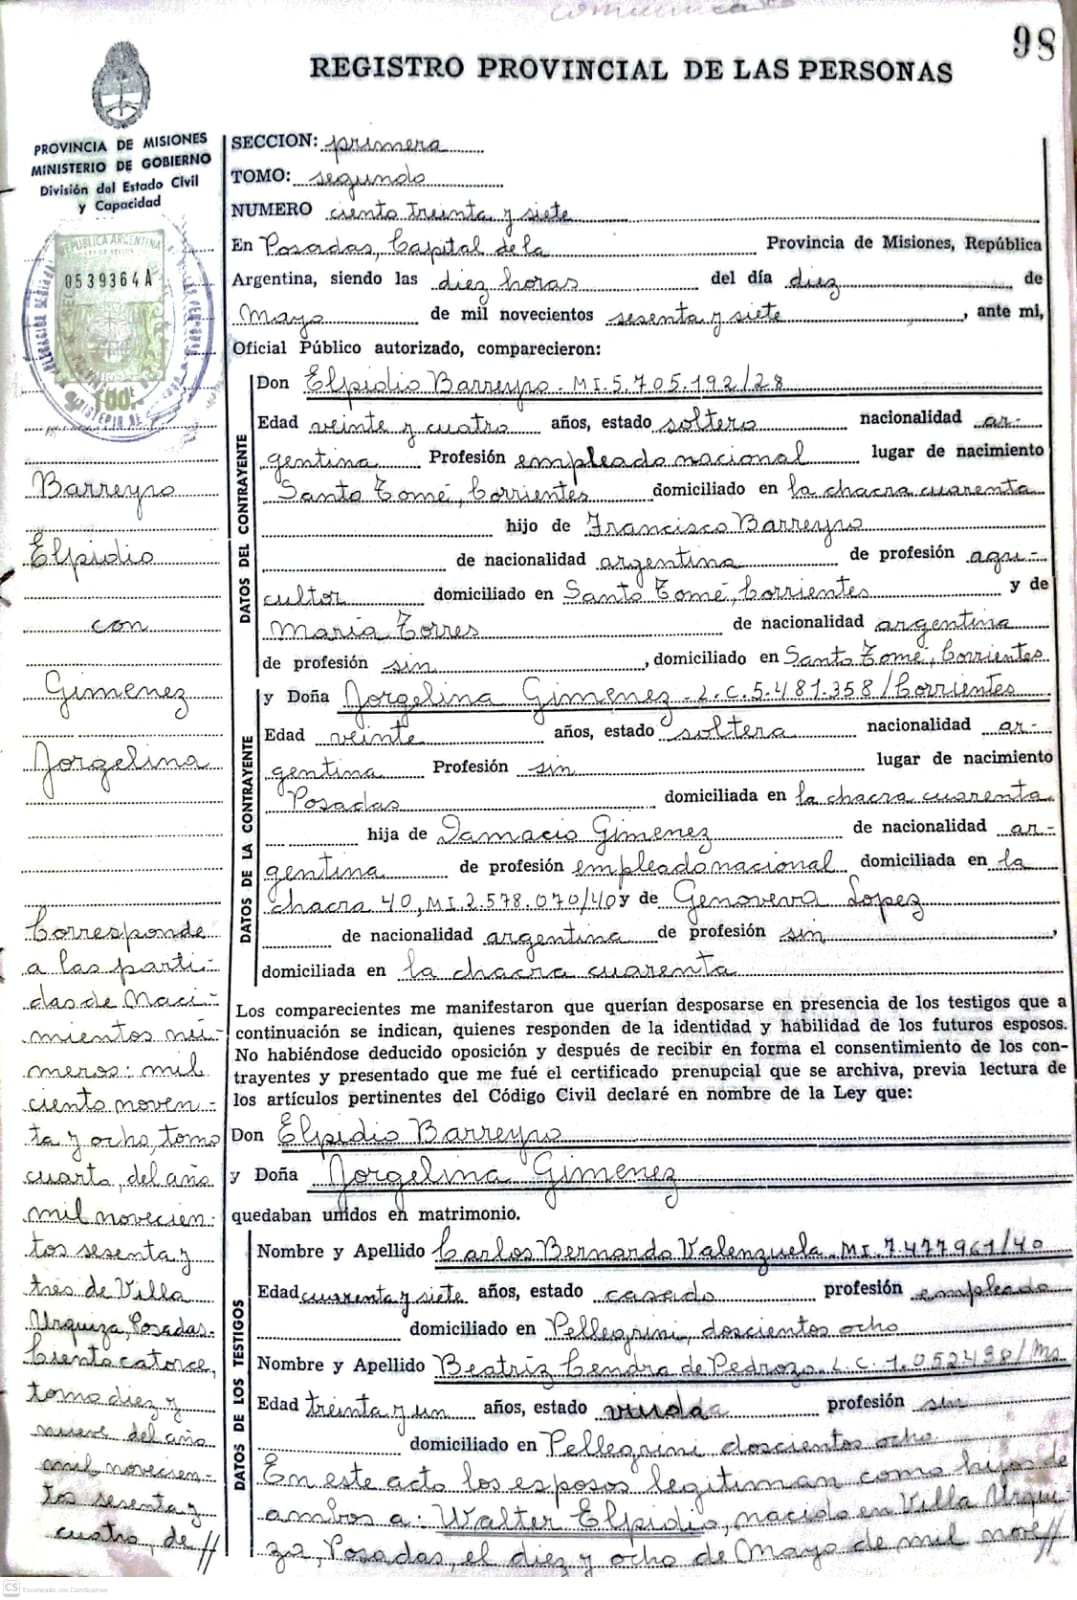 98
REGISTRO PROVINCIAL DE LAS PERSONAS
PROVINCIA DE MISIONES
MINISTERIO DE GOBIERNO
División del Estado Civil
y Capacidad
REPUBLICA ARGENTINA
0539364A
100.-
Barreyro
Elpidio
con
Gimenez
Jorgelina
Corresponde
a las parti-
das de Naci-
mientos nú-
meros: mil
ciento noven-
ta y ocho, tomo
cuarto, del año
mil novecien-
tos sesenta y
tres de Villa
Urquiza, Posadas.
Ciento catorce,
tomo diez y
nueve del año
mil novecien-
tos sesenta y
cuatro, de //
SECCION: primera
TOMO: segundo
NUMERO ciento treinta y siete
En Posadas, Capital de la Provincia de Misiones, República
Argentina, siendo las diez horas del día diez de
Mayo de mil novecientos sesenta y siete, ante mi,
Oficial Público autorizado, comparecieron:
DATOS DEL CONTRAYENTE
Don Elpidio Barreyro. M.I. 5.705.192/28
Edad veinte y cuatro años, estado soltero nacionalidad ar-
gentina Profesión empleado nacional lugar de nacimiento
Santo Tomé, Corrientes domiciliado en la chacra cuarenta
hijo de Francisco Barreyro
de nacionalidad argentina de profesión agri-
cultor domiciliado en Santo Tomé, Corrientes y de
María Torres de nacionalidad argentina
de profesión sin, domiciliado en Santo Tomé, Corrientes
DATOS DE LA CONTRAYENTE
y Doña Jorgelina Gimenez - L.C. 5.481.358/Corrientes
Edad veinte años, estado soltera nacionalidad ar-
gentina Profesión sin lugar de nacimiento
Posadas domiciliada en la chacra cuarenta
hija de Damacio Gimenez de nacionalidad ar-
gentina de profesión empleado nacional domiciliada en la
chacra 40, M.I. 2.578.070/40 y de Genoveva Lopez
de nacionalidad argentina de profesión sin,
domiciliada en la chacra cuarenta
Los comparecientes me manifestaron que querían desposarse en presencia de los testigos que a
continuación se indican, quienes responden de la identidad y habilidad de los futuros esposos.
No habiéndose deducido oposición y después de recibir en forma el consentimiento de los con-
trayentes y presentado que me fué el certificado prenupcial que se archiva, previa lectura de
los artículos pertinentes del Código Civil declaré en nombre de la Ley que:
Don Elpidio Barreyro
y Doña Jorgelina Gimenez
quedaban unidos en matrimonio.
DATOS DE LOS TESTIGOS
Nombre y Apellido Carlos Bernardo Valenzuela. M.I. 7.477961/40
Edad cuarenta y siete años, estado casado profesión empleado
domiciliado en Pellegrini, doscientos ocho
Nombre y Apellido Beatríz Cendra de Pedrozo. L.C. 1.052438/Ms.
Edad treinta y un años, estado viuda profesión sin
domiciliado en Pellegrini doscientos ocho.
En este acto los esposos legitiman como hijos de
ambos a: Walter Elpidio, nacido en Villa Urqui-
za, Posadas, el diez y ocho de Mayo de mil nove//
CS Escaneado con CamScanner